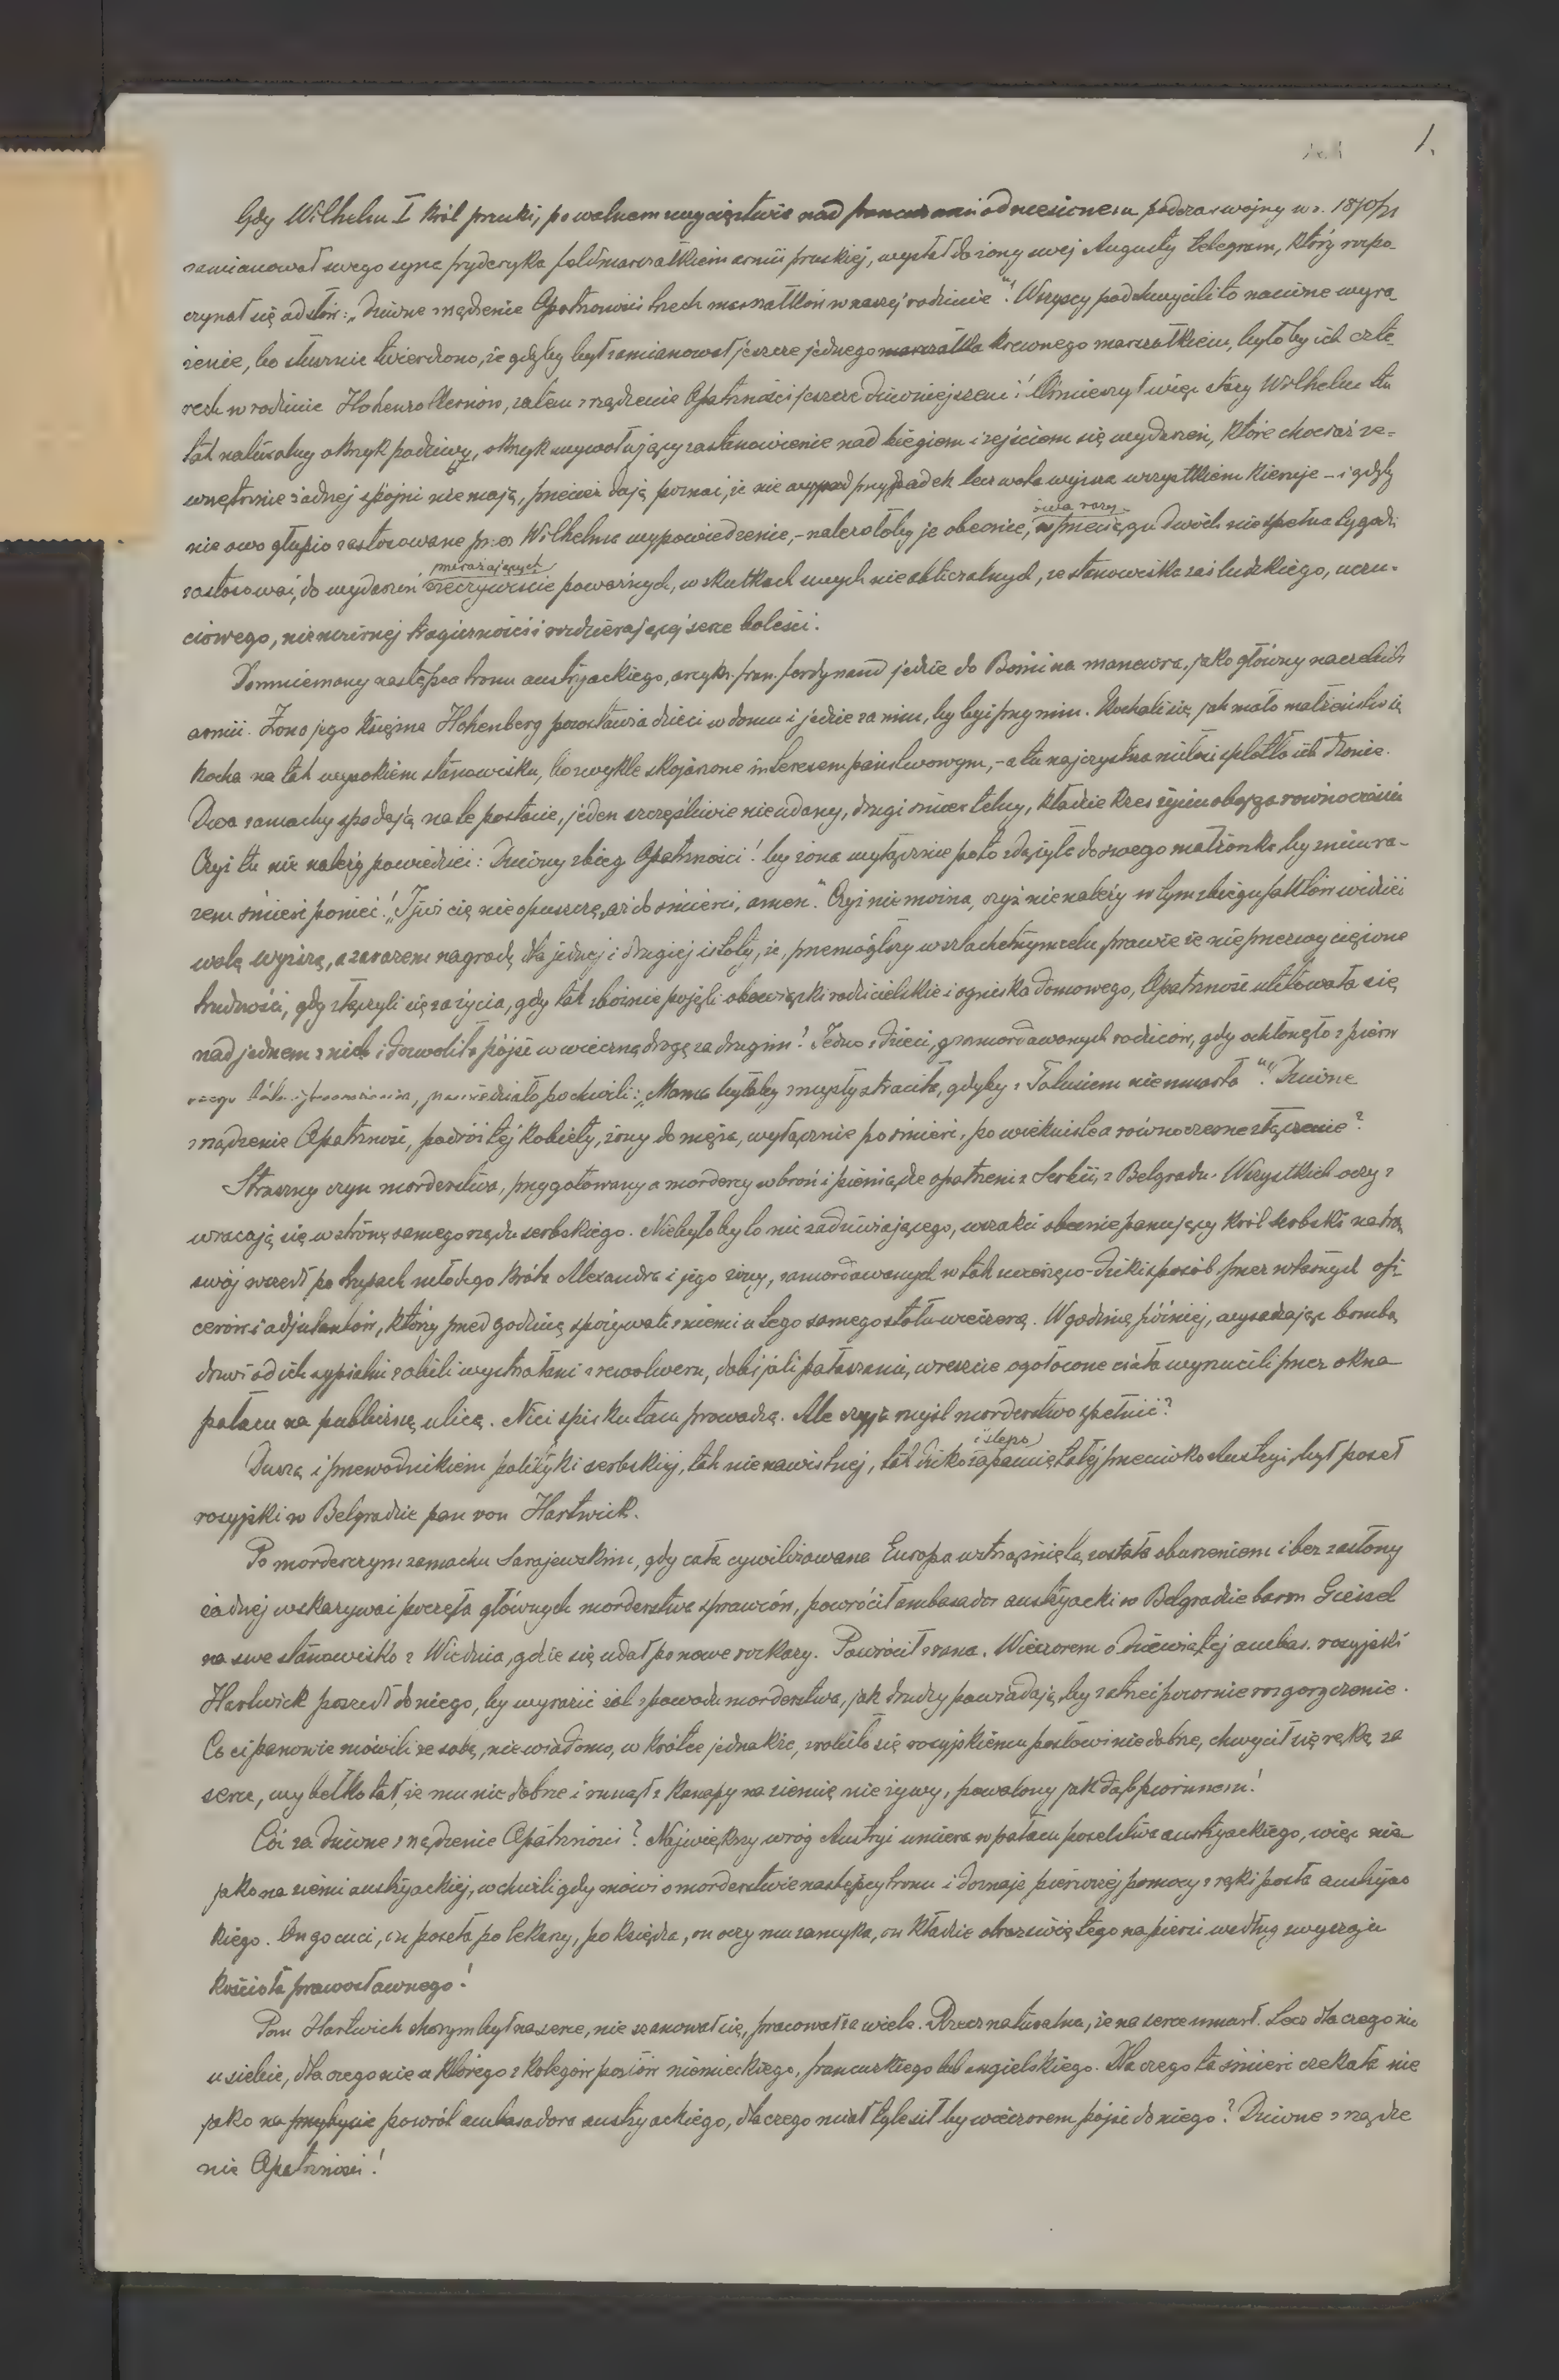 1.
Gdy Wilhelm I król pruski, po walnem zwycięstwie nad francuzami odniesionem podczas wojny w r. 1870/71
zamianował swego syna fryderyka feldmarszałkiem armii pruskiej, wysłał do żony swej Augusty telegram, który rozpo
czynał się od słów: „Dziwne zrządzenie Opatrzności trzech marszałków w naszej rodzinie"! Wszyscy podchwycili to naiwne wyra
żenie, bo słusznie twierdzono, że gdyby był zamianował jeszcze jednego marszałka krewnego marszałkiem, byłoby ich czte
rech w rodzinie Hohenzollernów, zatem zrządzenie Opatrzności jeszcze dziwniejszem! Ośmieszył więc stary Wilhelm tu
tak naturalny okrzyk podziwu, okrzyk wywołujący zastanowienie nad biegiem i zejściem się wydarzeń, które chociaż ze=
wnętrznie żadnej spójni nie mają, przecież dają poznać, że nie przypadek lecz wola wyższa wszystkiem kieruje – i gdyby
nie owo głupio zastosowane przez Wilhelma wypowiedzenie, – należałoby je obecnie, dwa razy w przeciągu dwóch niespełna tygodni
zastosować, do wydarzeń rzeczywiście przerażających poważnych, w skutkach swych nieobliczalnych, ze stanowiska zaś ludzkiego, uczu-
ciowego, niezmiernej tragiczności i rozdzierającej serce boleści.
Domniemany następca tronu austryjackiego, arcyks. fran. ferdynand jedzie do Bośni na manewra, jako główny naczelnik
armii. Żona jego księżna Hohenberg pozostawia dzieci w domu i jedzie za nim, by być przy nim. Kochali się, jak mało małżeństw się
kocha na tak wysokiem stanowisku, bo zwykle skojarzone interesem państwowym, – a tu najczystsza miłość splotła ich dłonie.
Dwa zamachy spadają na te postacie, jeden szczęśliwie nieudany, drugi śmiertelny, kładzie kres życiu obojga równocześnie
Czyż tu nie należy powiedzieć: Dziwny zbieg Opatrzności! by żona wyłącznie po to zdążyła do swego małżonka by z nim ra-
zem śmierć ponieść! „I jużci cię nie opuszczę, aż do śmierci, amen". Czyż nie można, czyż nie należy w tym zbiegu faktów widzieć
wolę wyższą, a zarazem nagrodę dla jednej i drugiej istoty, że, przemógłszy w szlachetnym celu, prawie że nieprzezwyciężone
trudności, gdy złączyli się za życia, gdy tak zbożnie pojęli obowiązki rodzicielskie i ogniska domowego, Opatrzność ulitowała się
nad jednem z nich i dozwoliła pójść w wieczną drogę za drugim! Jedno z dzieci, zamordowanych rodziców, gdy ochłonęło z pierw
szego bólu i przerażenia, powiedziało po chwili: „Mama byłaby zmysły straciła, gdyby z Tatusiem nie umarła"! Dziwne
zrządzenie Opatrzność, podróż tej kobiety, żony do męża, wyłącznie po śmierć, po wiekuiste a równoczesne złączenie?
Straszny czyn morderstwa, przygotowany a mordercy w broń i pieniądze opatrzeni z Serbii, z Belgradu. Wszystkich oczy z
wracają się w stronę samego rządu serbskiego. Niebyłoby to nic zadziwiającego, wszakci obecnie panujący król serbski na tron
swój wszedł po trupach młodego króla Alexandra i jego żony, zamordowanych w tak zwierzęco-dziki sposób przez własnych ofi
cerów i adjutantów, którzy przed godziną spożywali z niemi u tego samego stołu wieczerzę. W godzinę później, wysadzając bombą
drzwi od ich sypialni zabili wystrzałami z rewolweru, dobijali pałaszami, wreszcie ogołocone ciała wyrzucili przez okna
pałacu na publiczną ulicę. Nici spisku tam prowadzą. Ale czyja myśl morderstwo spełnić?
Duszą i przewodnikiem polityki serbskiej, tak nienawistnej, tak dziko i ślepo zapamiętałej przeciwko Austryi, był poseł
rosyjski w Belgradzie pan von Hartwick.
Po morderczym zamachu Sarajewskim, gdy cała cywilizowana Europa wstrząśniętą została oburzeniem i bez zasłony
żadnej wskazywać poczęła głównych morderstwa sprawców, powrócił ambasador austryacki w Belgradzie baron Gieisel
na swe stanowisko z Wiednia, gdzie się udał po nowe rozkazy. Powrócił z rana. Wieczorem o dziewiątej ambas. rosyjski
Hartwick poszedł do niego, by wyrazić żal z powodu morderstwa, jak drudzy powiadają, by zatrzeć pozornie rozgoryczenie.
Co ci panowie mówili ze sobą, nie wiadomo, w krótce jednakże, zrobiło się rosyjskiemu posłowi niedobrze, chwycił się ręką za
serce, wybełkotał, że mu nie dobrze i runął z kanapy na ziemię nieżywy, powalony jak dąb piorunem!
Cóż za dziwne zrządzenie Opatrzności? Największy wróg Austryi umiera w pałacu poselstwa austryackiego, więc nie
jako na ziemi austryackiej, w chwili gdy mówi o morderstwie następcy tronu i doznaje pierwszej pomocy z ręki posła austryac
kiego. On go cuci, on poseła po lekarzy, po księdza, on oczy mu zamyka, on kładzie obraz świętego na piersi według zwyczaju
kościoła prawosławnego!
Pan Hartwich chorym był na serce, nie szanował się, pracował za wiele. Rzecz naturalna, że na serce umarł. Lecz dla czego nie
u siebie, dla czego nie u którego z kolegów posłów niemieckiego, francuskiego lub angielskiego. Dla czego ta śmierć czekała nie
jako na przybycie powrót ambasadora austryackiego, dlaczego miał tyle sił by wieczorem pójść do niego? Dziwne zrządze
nie Opatrzności!